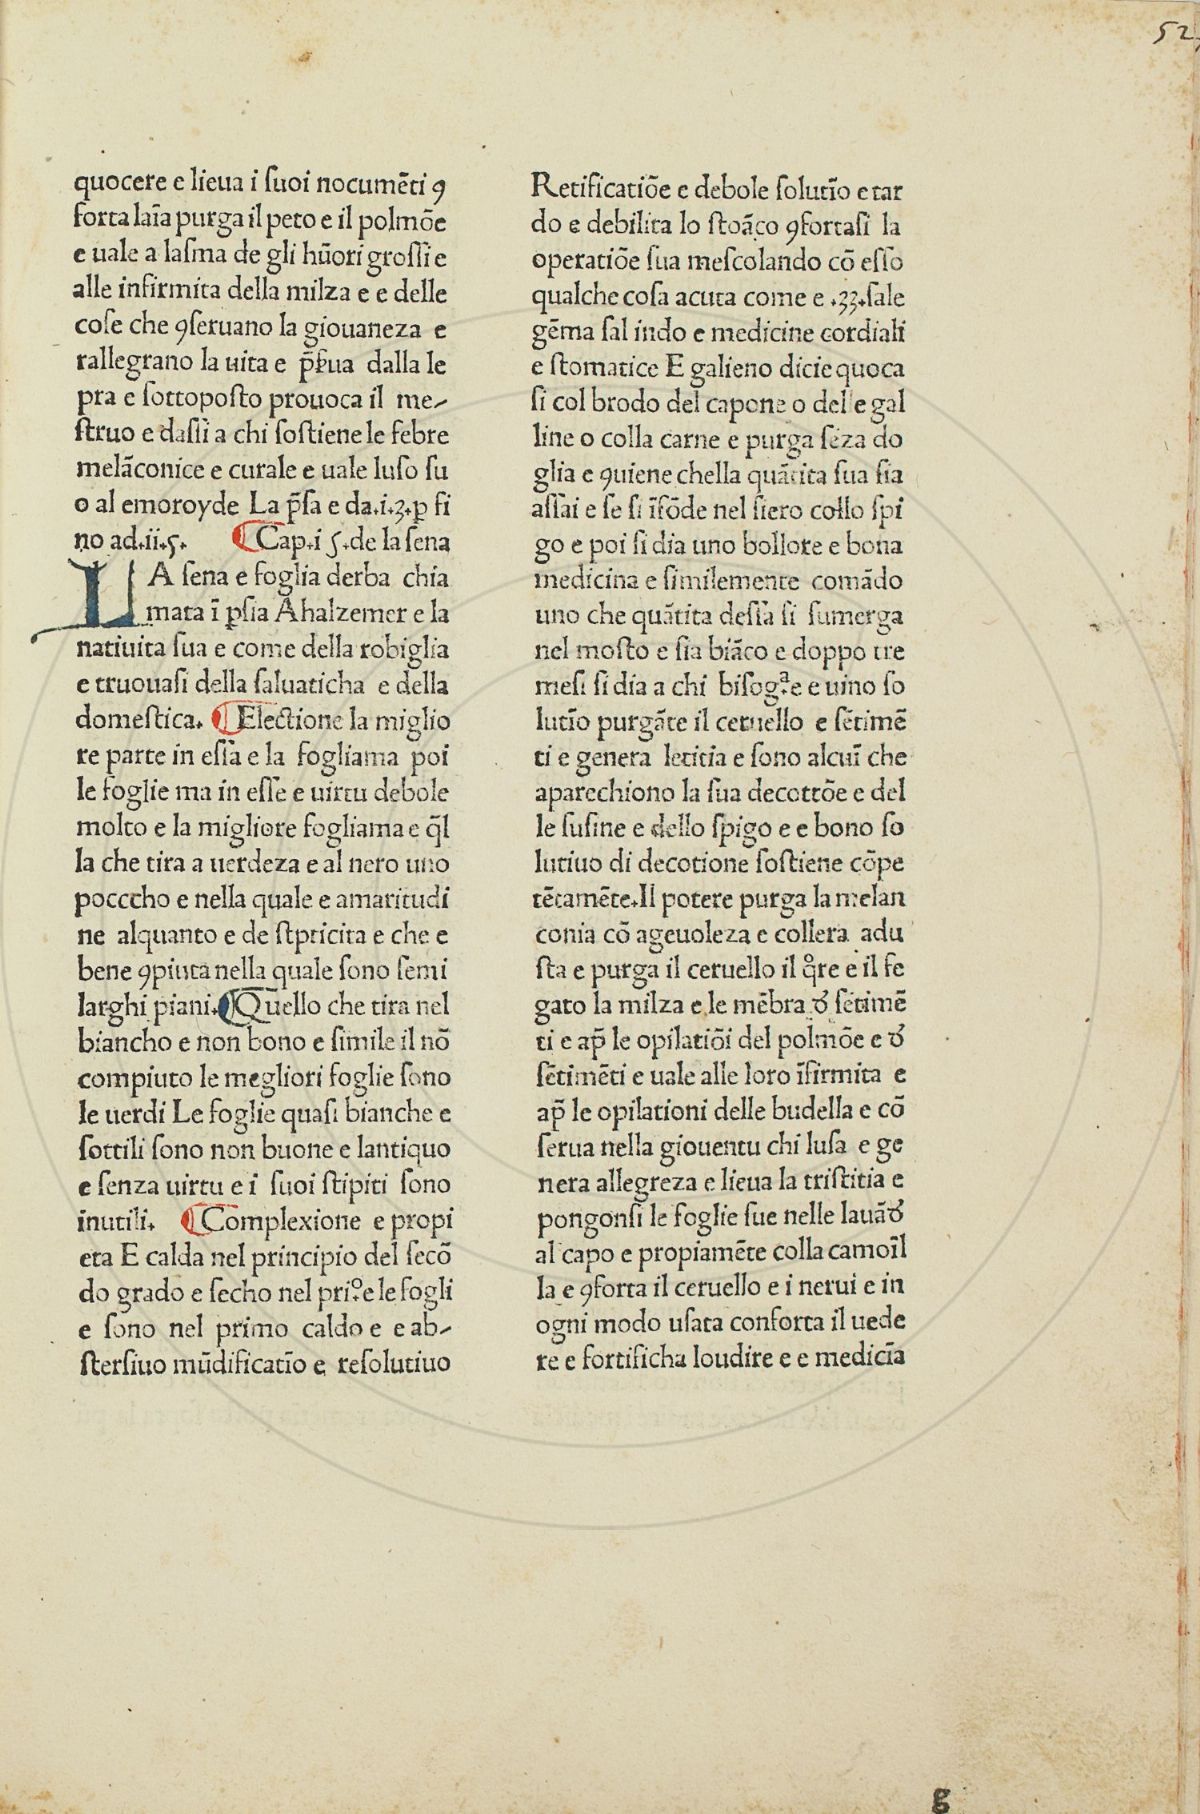 52
quocere e lieua i ſuoi nocumēti ꝯ
forta laīa purga il peto e il polmōe
e uale a laſma de gli hūori groſſi e
alle infirmita della milza e e delle
coſe che ꝯſeruano la giouaneza e
rallegrano la uita e p̄ſua dalla le
pra e ſottopoſto prouoca il me-
ſtruo e daſſi a chi ſoſtiene le febre
melāconice e curale e uale luſo ſu
o al emoroyde La p̄ſa e da.i.ʒ.ꝑ fi
no ad.ii.5. Cap.i 5.de la ſena
LA ſena e foglia derba chia
mata ī ꝑſia Ahalzemer e la
natiuita ſua e come della robiglia
e truouaſi della ſaluaticha e della
domeſtica. Electione la miglio
re parte in eſſa e la fogliama poi
le foglie ma in eſſe e uirtu debole
molto e la migliore fogliama e q̄l
la che tira a uerdeza e al nero uno
poccho e nella quale e amaritudi
ne alquanto e de ſtpticita e che e
bene ꝯpiuta nella quale ſono ſemi
larghi piani. Quello che tira nel
biancho e non bono e ſimile il nō
compiuto le megliori foglie ſono
le uerdi Le foglie quaſi bianche e
ſottili ſono non buone e lantiquo
e ſenza uirtu e i ſuoi ſtipiti ſono
inutili. Complexione e propi
eta E calda nel principio del ſecō
do grado e ſecho nel pri.o e le fogli
e ſono nel primo caldo e e ab-
ſterſiuo mūdificatīo e reſolutiuo
Retificatiōe e debole ſolutīo e tar
do e debilita lo ſtoāco ꝯfortaſi la
operatiōe ſua meſcolando cō eſſo
qualche coſa acuta come e .ʒʒ.ſale
gēma ſal indo e medicine cordiali
e ſtomatice E galieno dicie quoca
ſi col brodo del capone o delle gal
line o colla carne e purga ſēza do
glia e ꝯuiene chella quātita ſua ſia
aſſai e ſe ſi īfōde nel ſiero collo ſpi
go e poi ſi dia uno bollore e bona
medicina e ſimilemente comādo
uno che quātita deſſa ſi ſumerga
nel moſto e ſia biāco e doppo tre
meſi ſi dia a chi biſog.a e e uino ſo
lutīo purgāte il ceruello e ſētimē
ti e genera letitia e ſono alcuī che
aparechiono la ſua decottōe e del
le ſuſine e dello ſpigo e e bono ſo
lutiuo di decotione ſoſtiene cōpe
tētamēte.Il potere purga la melan
conia cō ageuoleza e collera adu
ſta e purga il ceruello il q̊re e il fe
gato la milza e le mēbra ꝺ ſētimē
ti e ap̄ le opilatiōi del polmōe e ꝺ
ſētimēti e uale alle loro īfirmita e
ap̄ le opilationi delle budella e cō
ſerua nella giouentu chi luſa e ge
nera allegreza e lieua la triſtitia e
pongonſi le foglie ſue nelle lauāꝺ
al capo e propiamēte colla camoīl
la e ꝯforta il ceruello e i nerui e in
ogni modo uſata conforta il uede
re e fortificha loudire e e medicīa
g